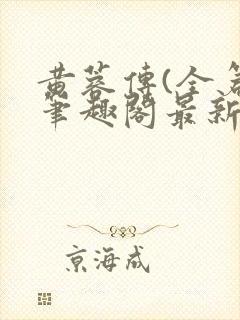 黄蓉传(全篇
笔趣阁最新
京海成